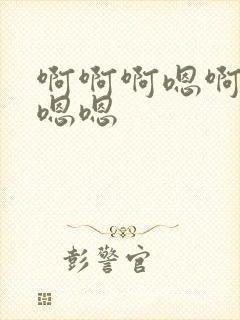 啊啊啊嗯啊
嗯嗯
彭警官